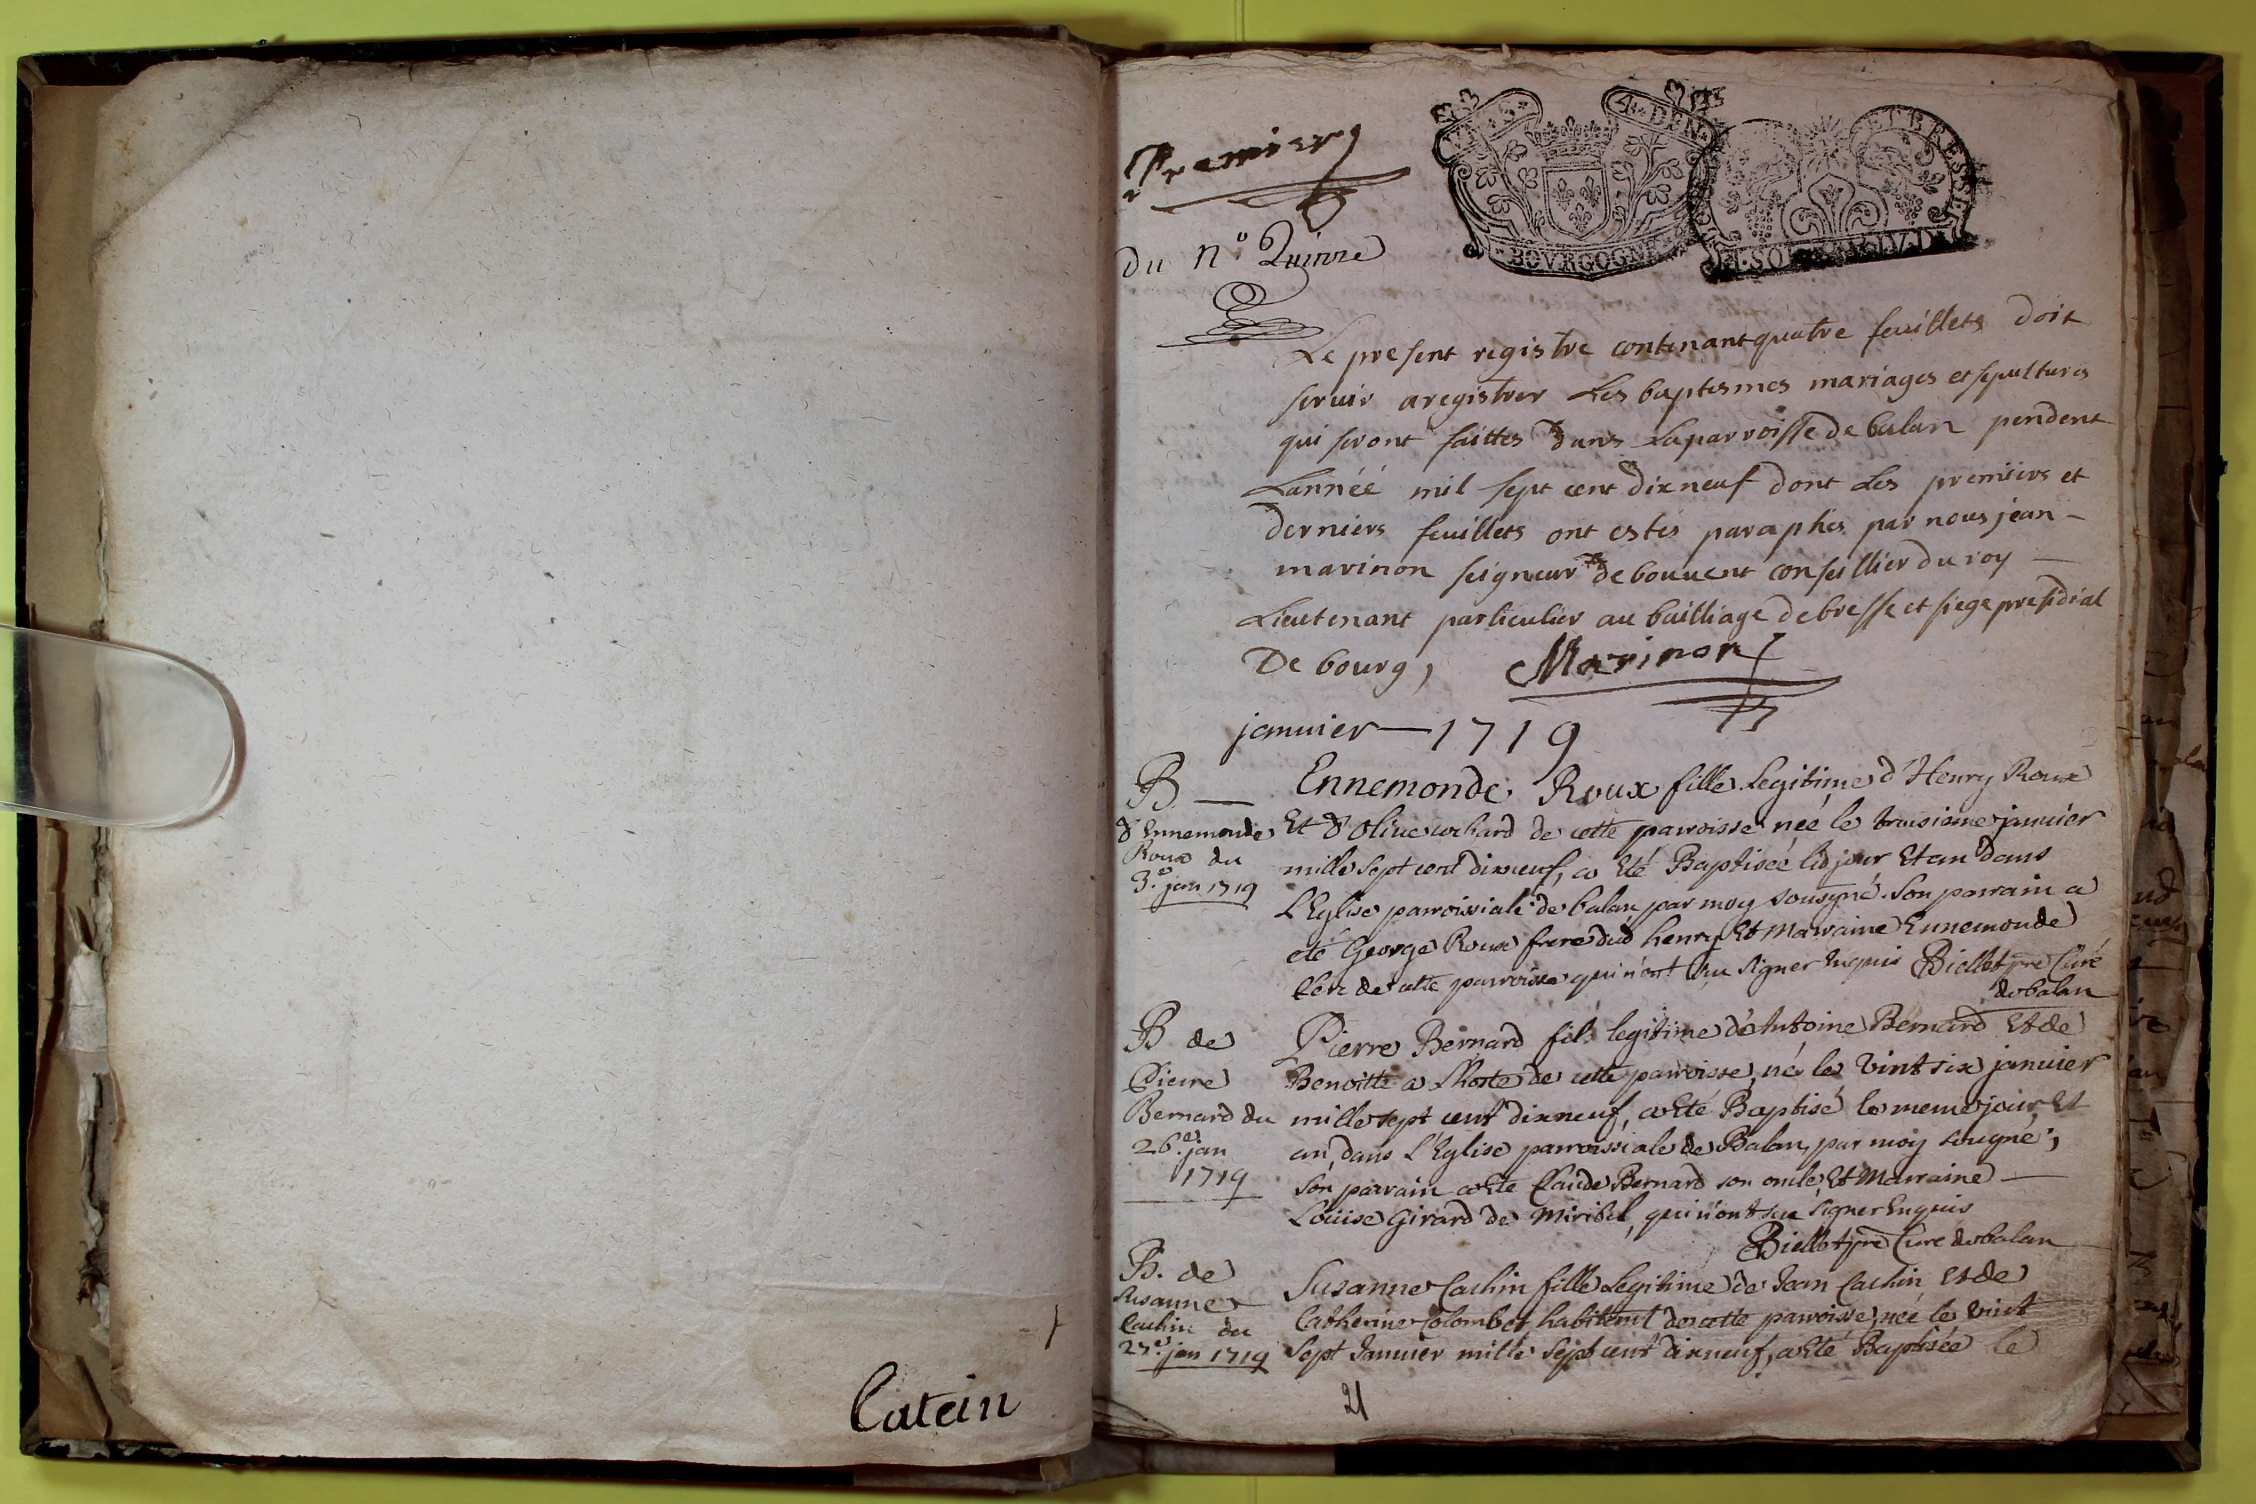 Catein
Premier
4. DEN
ET BRESSE
BOVRGOGNE
du n.º Quinze
Le present registre contenant quatre feuillets doit
servir a registrer Les baptesmes mariages et sepultures
qui seront faittes dans La parroisse de balan pendent
Lannéé mil sept cent dixneuf dont Les premiers et
derniers feuillets ont estés paraphés par nous jean -
marinon seigneur de bouuent conseillier du roy —
Lieutenant particulier au bailliage de bresse et siege presidial
De bourg, Marinon
januier — 1719
B — Ennemonde Roux fille Legitime d'Henry Roux
d'Ennemonde Et d'Oliue cochard de cette parroisse née le troisieme januier
Roux du mille sept cent dixneuf, a Eté Baptisée led jour Et an dans
3.e jan 1719 L'Eglise parroissiale de balan par moy sousigné. Son parrain a
eté George Roux frere dud henry Et Marraine Ennemonde
Clerc de cette parroisse qui n'ont sçu signer Enquis Biellet pre Curé
de balan
B de Pierre Bernard fils legitime d'Antoine Bernard Et de
Pierre Benoitte a Lhoste de cette parroisse, né le Vint six januier
Bernard du mille sept cent dixneuf, a Eté Baptisé le meme jour Et
26.e jan an, dans L'Eglise parroissiale de Balan, par moy sougné,
1719 son parrain a Eté Claude Bernard son oncle, Et Marraine —
Loüise Girard de Miribel, qui n'ont sçu signer Enquis
Biellet pre Curé de balan
B. de Susanne Cachin fille Legitime de Jean Cachin Et de
Susanne Catherine Colombet habitent de cette parroisse, née le vint
Cachin du Sept Januier mille Sept cent dixneuf, a Eté Baptisée le
27.e jan 1719
21